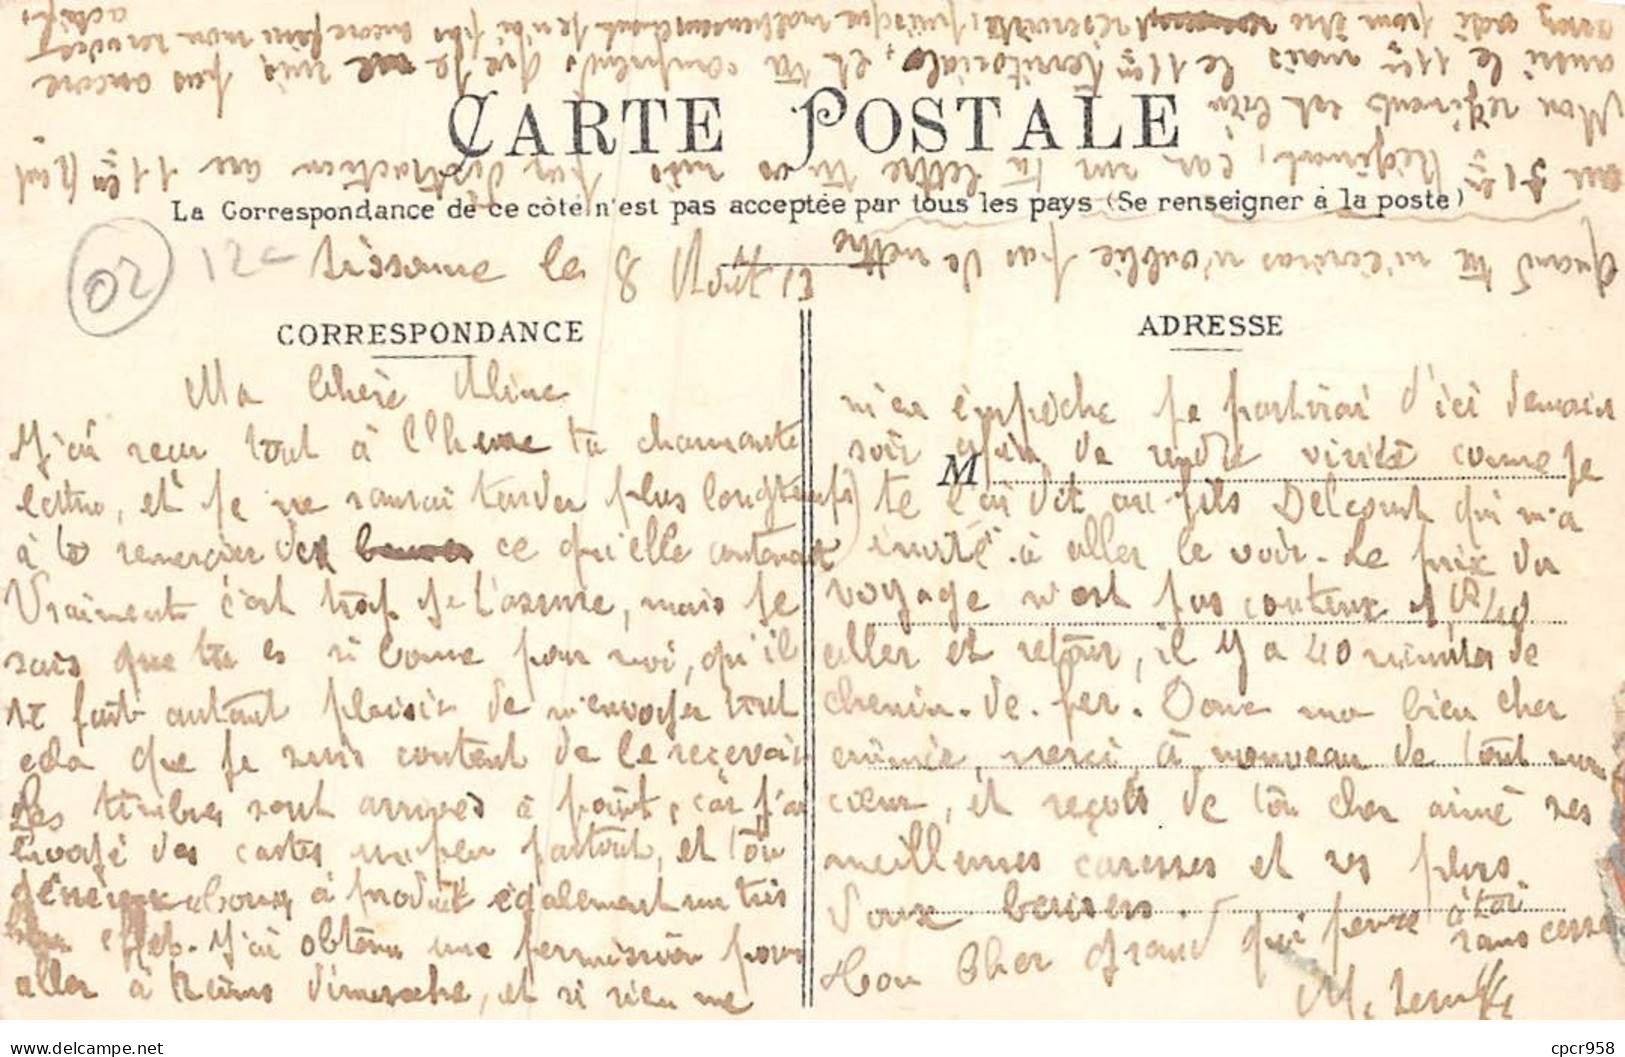 CARTE POSTALE
La Correspondance de ce côté n'est pas acceptée par tous les pays (Se renseigner à la poste)
02
12-
Sissonne le 8 Août 13
CORRESPONDANCE
Ma Chère Aline
J'ai reçu tout à l'heure ta charmante
lettre, et je ne saurai tarder plus longtemps
à te remercier de ce qu'elle contenait
Vraiment c'est trop je t'assure, mais je
sais que tu es si bonne pour moi, qu'il
te fait autant plaisir de m'envoyer tout
cela que je suis content de le recevoir
Les timbres sont arrivés à point, car j'ai
envoyé des cartes un peu partout, et ton
généreux bon à produit également un très
bon effet. J'ai obtenu une permission pour
aller à Reims dimanche, et si rien ne
ADRESSE
M
m'en empêche je partirai d'ici demain
soir afin de rendre visite comme je
te l'ai dit au fils Delcourt qui m'a
invité à aller le voir. Le prix du
voyage n'est pas couteux 1 40
aller et retour, il y a 40 minutes de
chemin-de-fer. Donc ma bien cher
aimée, merci à nouveau de tout mon
cœur, et reçois de ton cher aimé ses
meilleures caresses et ses plus
doux baisers.
Ton Cher grand qui pense à toi
sans cesse
M.
Quand tu m'écriras n'oublie pas de mettre
au 51em Régiment, car sur ta lettre tu as mis par distraction au 11em
Mon régiment est bien
aussi le 11em mais le 11em territoriale, et tu comprends que je ne suis pas ancore
assez vieux pour être réserviste, puisque malheureusement je n'ai pas encore fini mon service
actif.
cpcr958